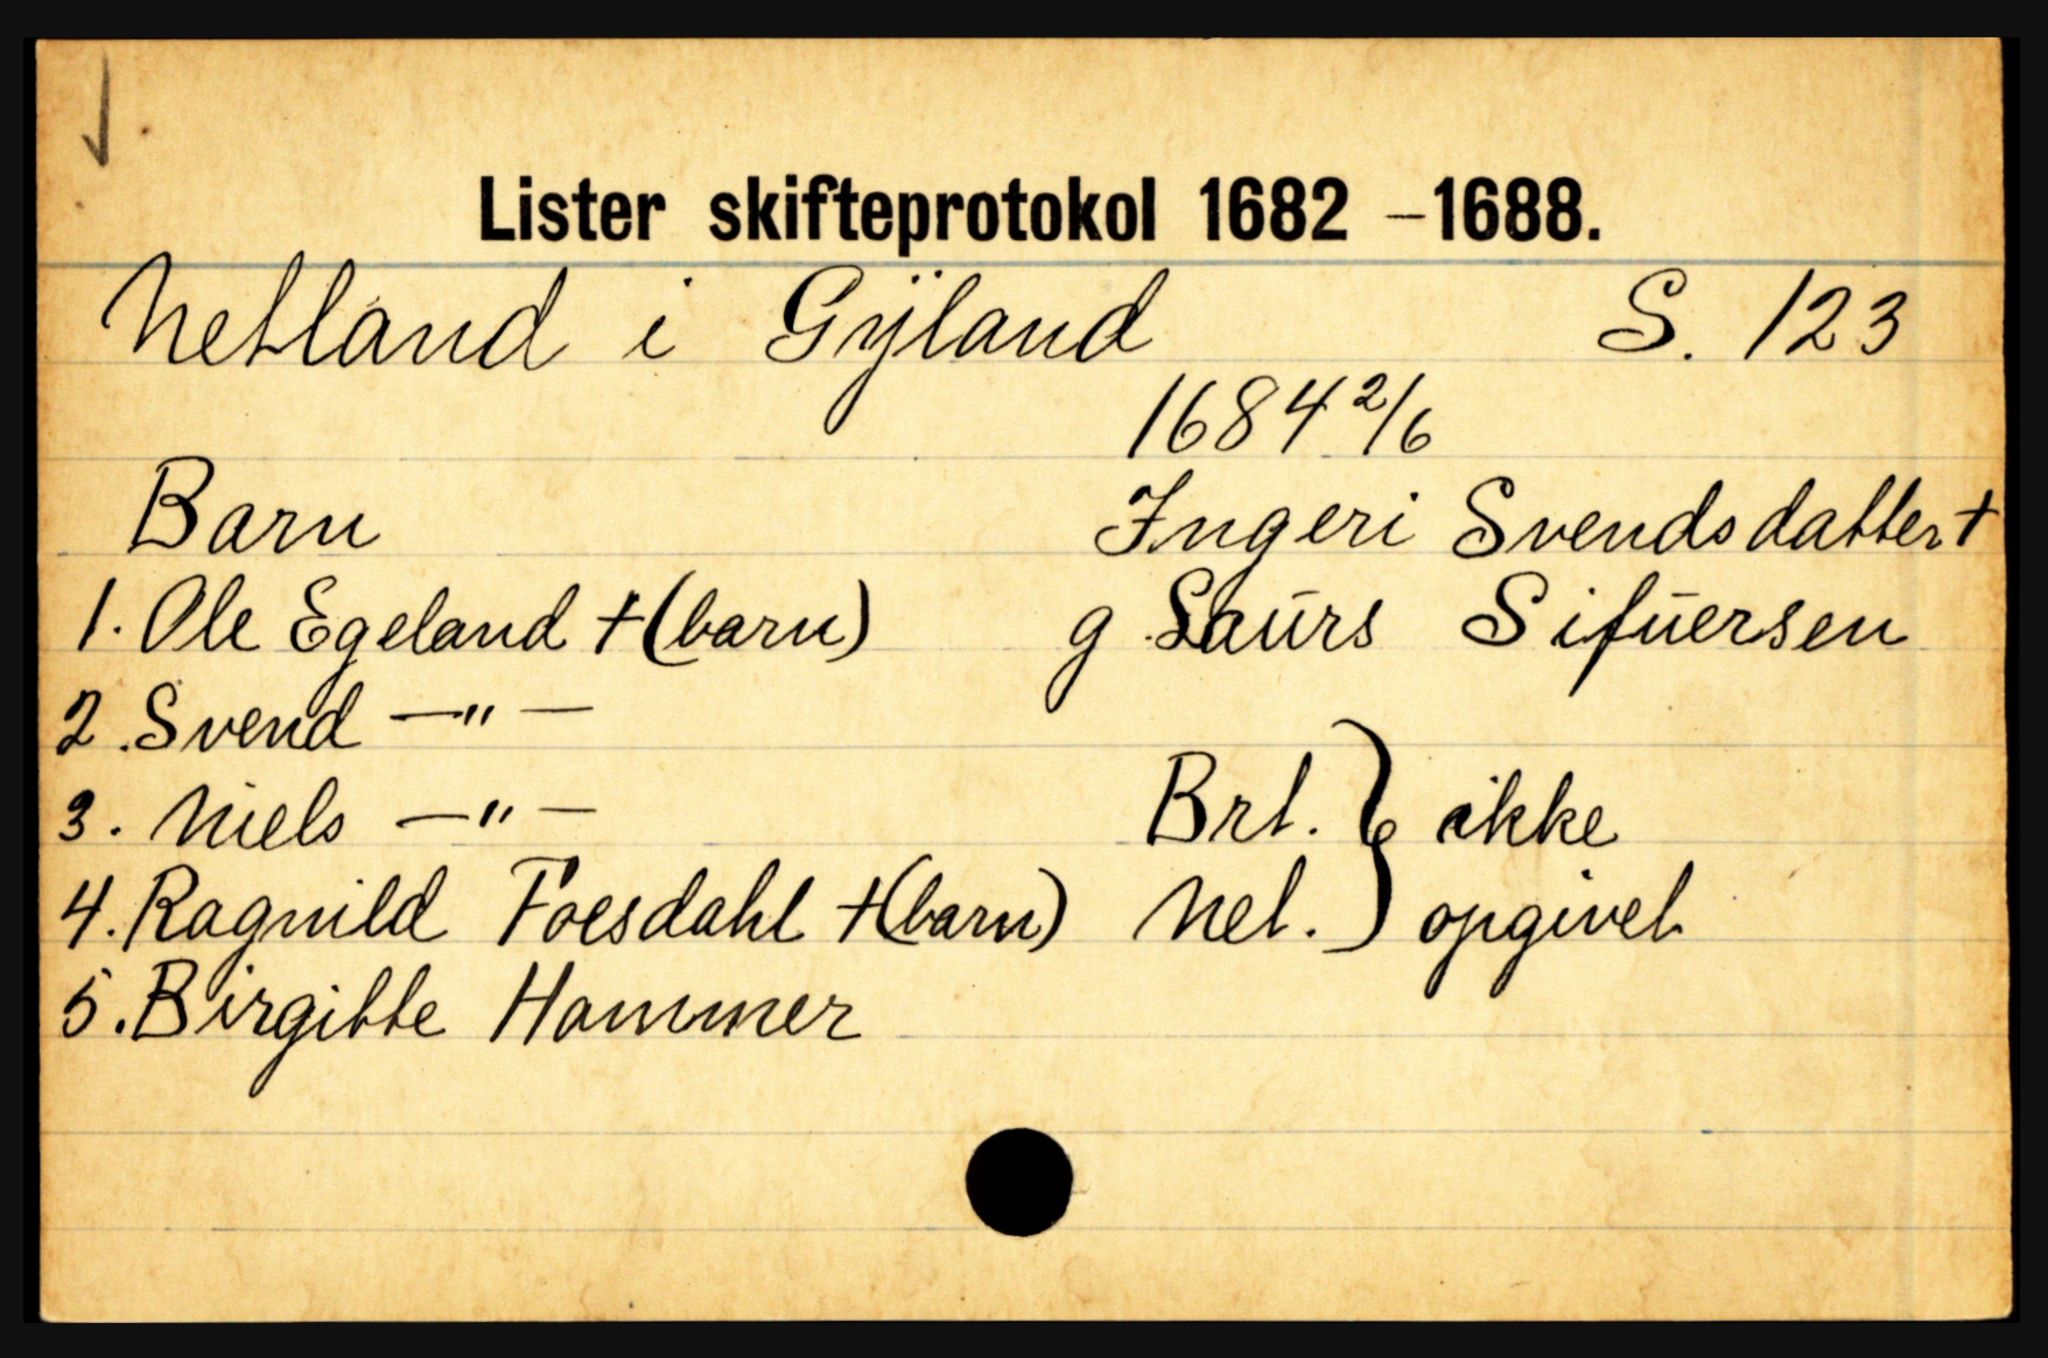 Lister skifteprotokol 1682 – 1688.
Netland i Gÿland S. 123
1684 2/6
Barn Ingeri Svendsdatter +
1. Ole Egeland + (barn) g Laurs Sifuersen
2. Svend — " —
3. Niels — " — Brt. } ikke
4. Ragnild Foesdahl + (barn) Net. } opgivet
5. Birgitte Hammer